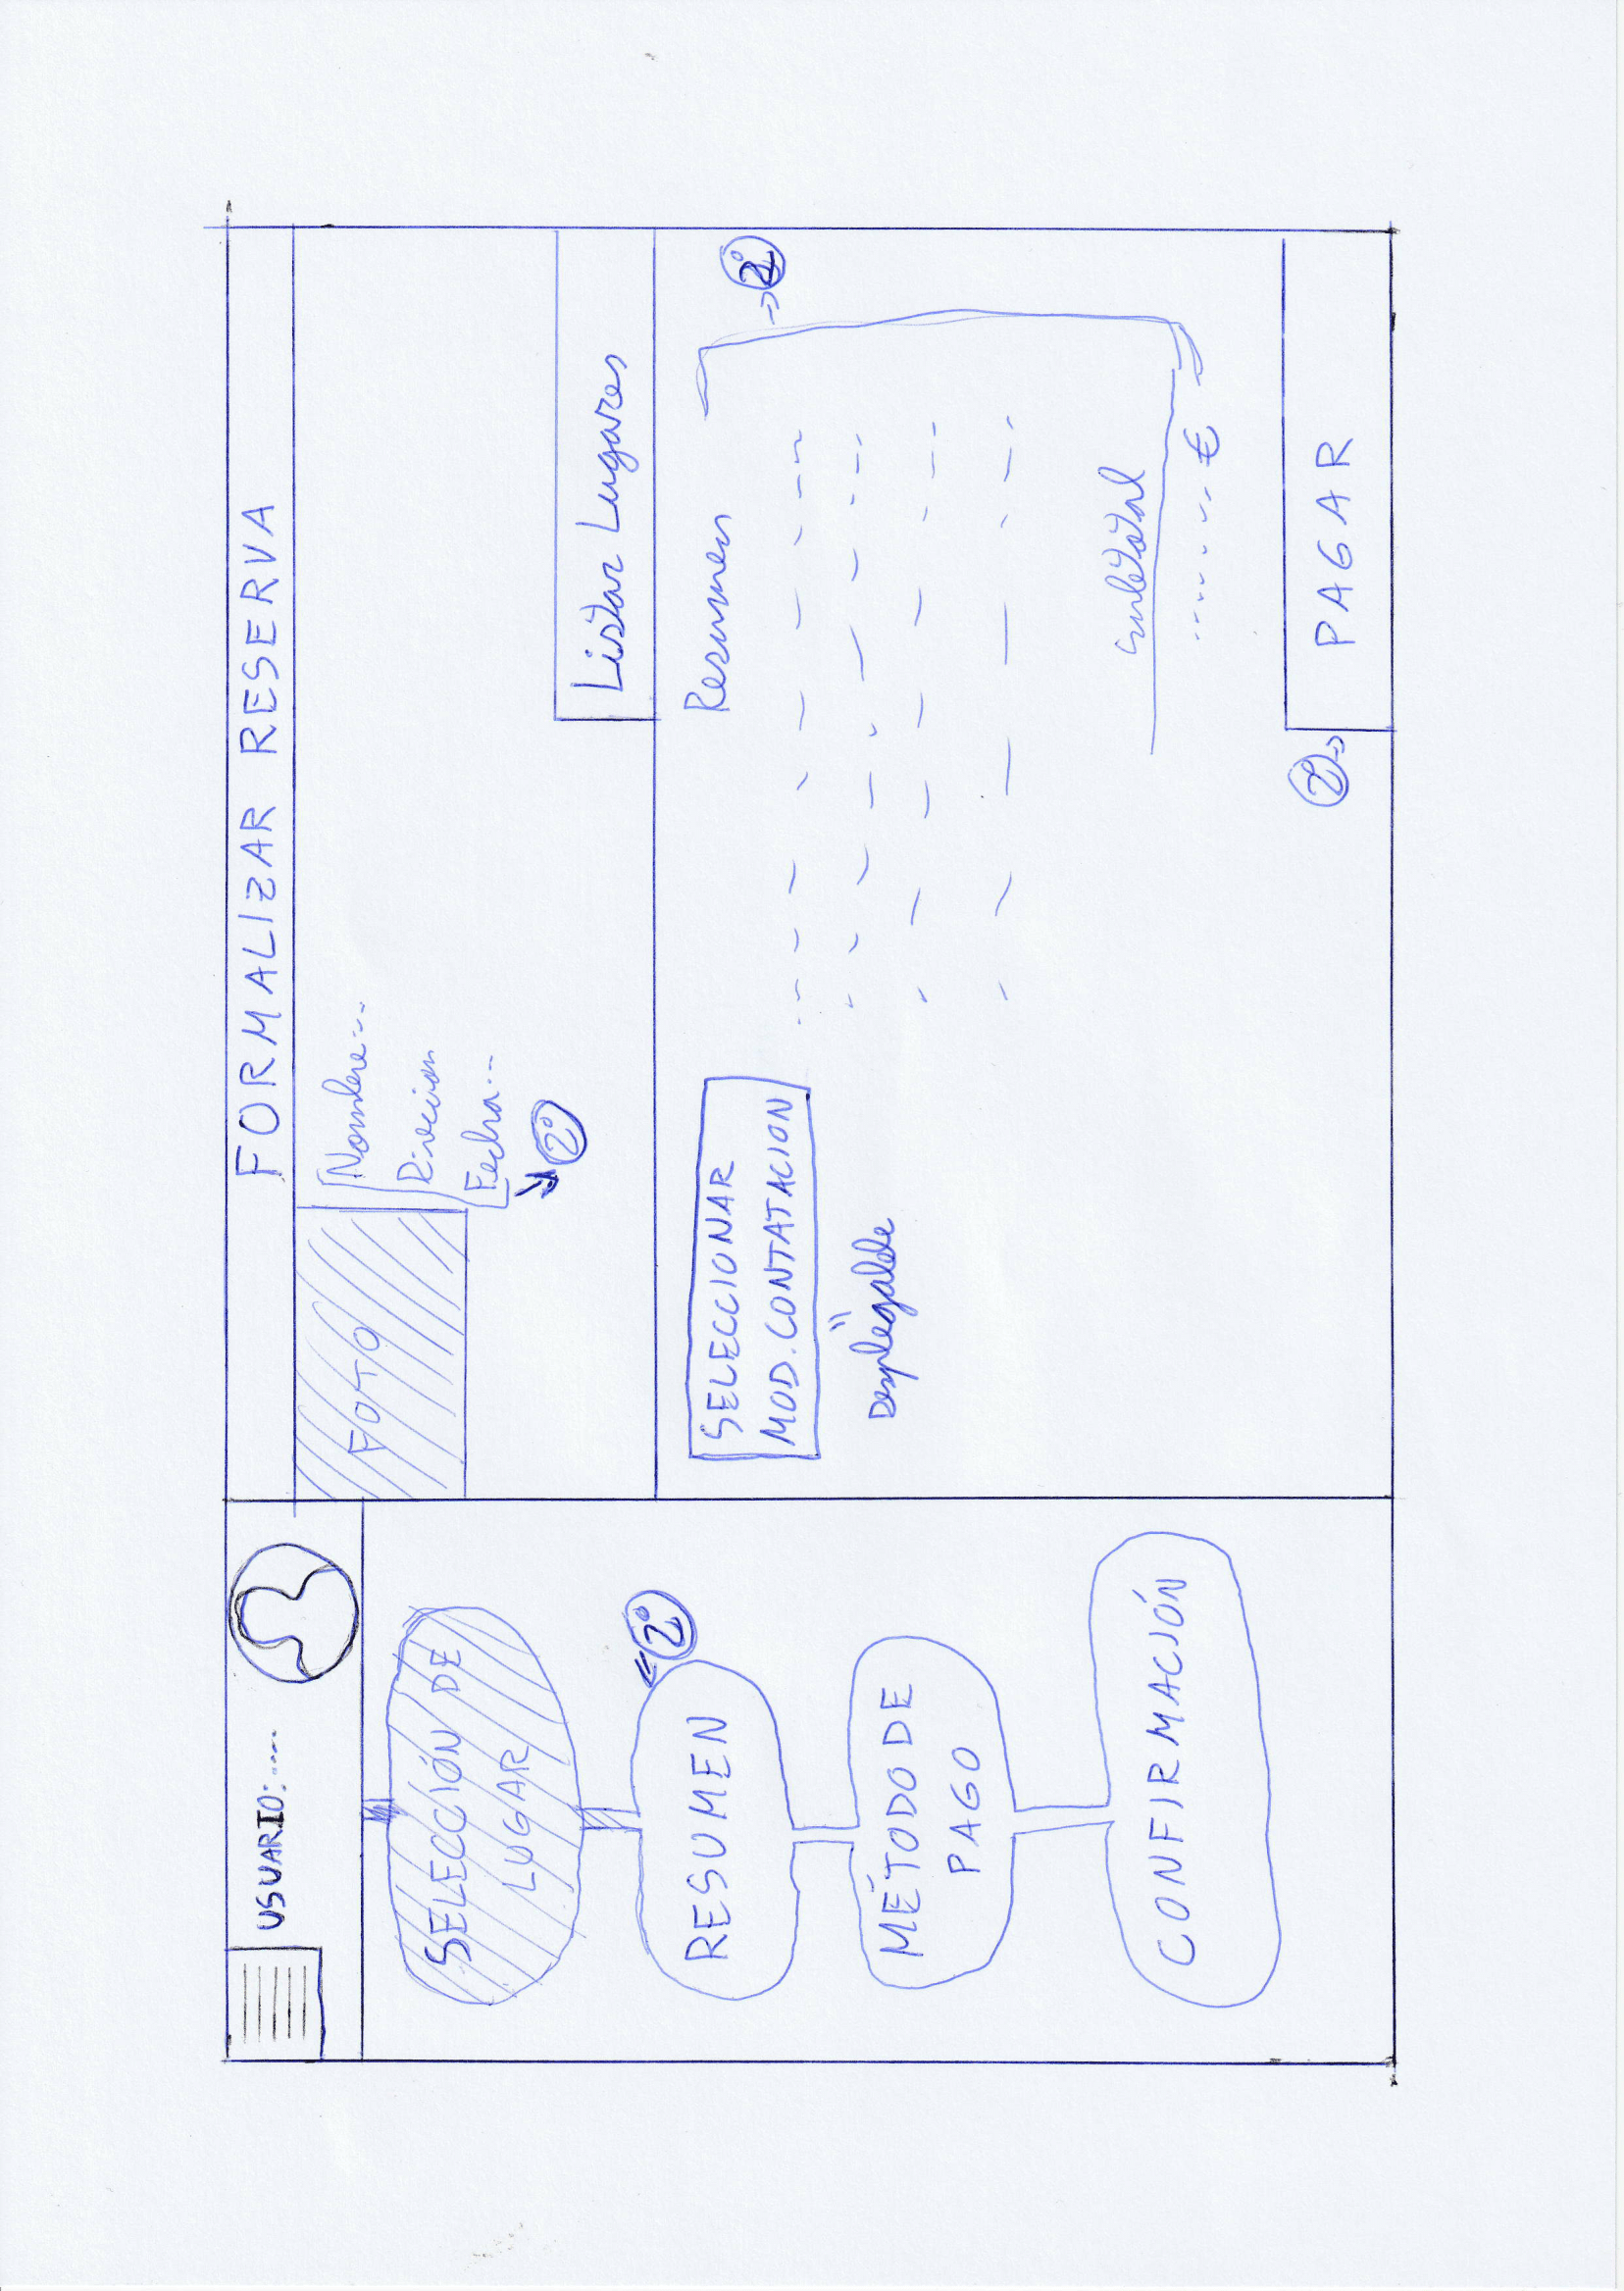 USUARIO:....
SELECCIÓN DE
LUGAR
2º
RESUMEN
MÉTODO DE
PAGO
CONFIRMACIÓN
FORMALIZAR RESERVA
FOTO
Nombre...
Direcion
Fecha...
2º
Listar Lugares
SELECCIONAR
MOD. CONTATACION
Desplegable
Resumen
2º
subtotal
€
2º
PAGAR